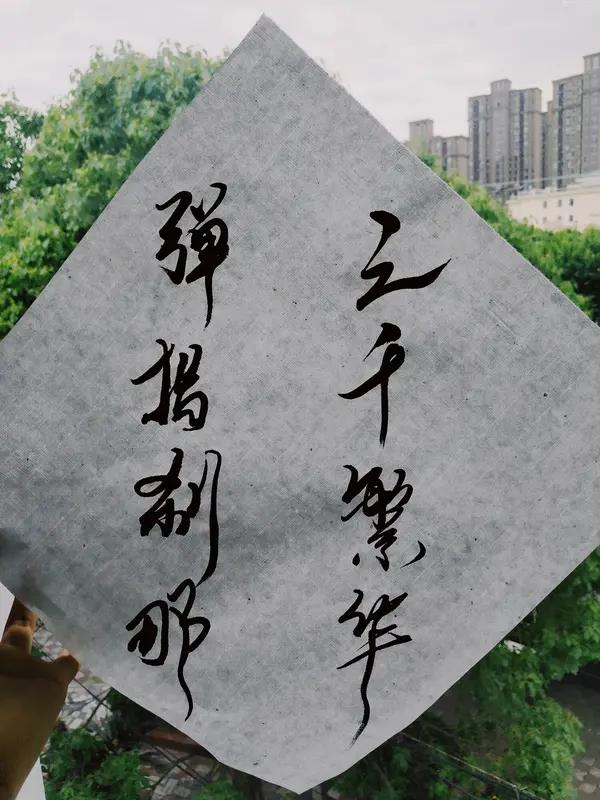 三千繁华
弹指刹那